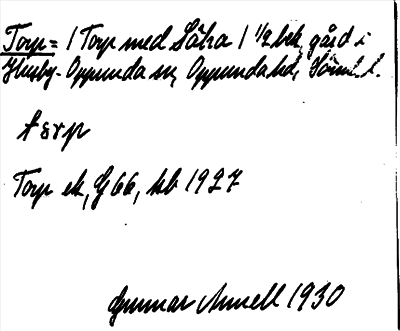 Torp = 1 Torp med Sätra 1 1/2 hrk gård i
Husby-Oppunda sn, Oppunda hd, Söml. l.
tɔrp
Torp ek, G 66, kb 1927
Gunnar Annell 1930